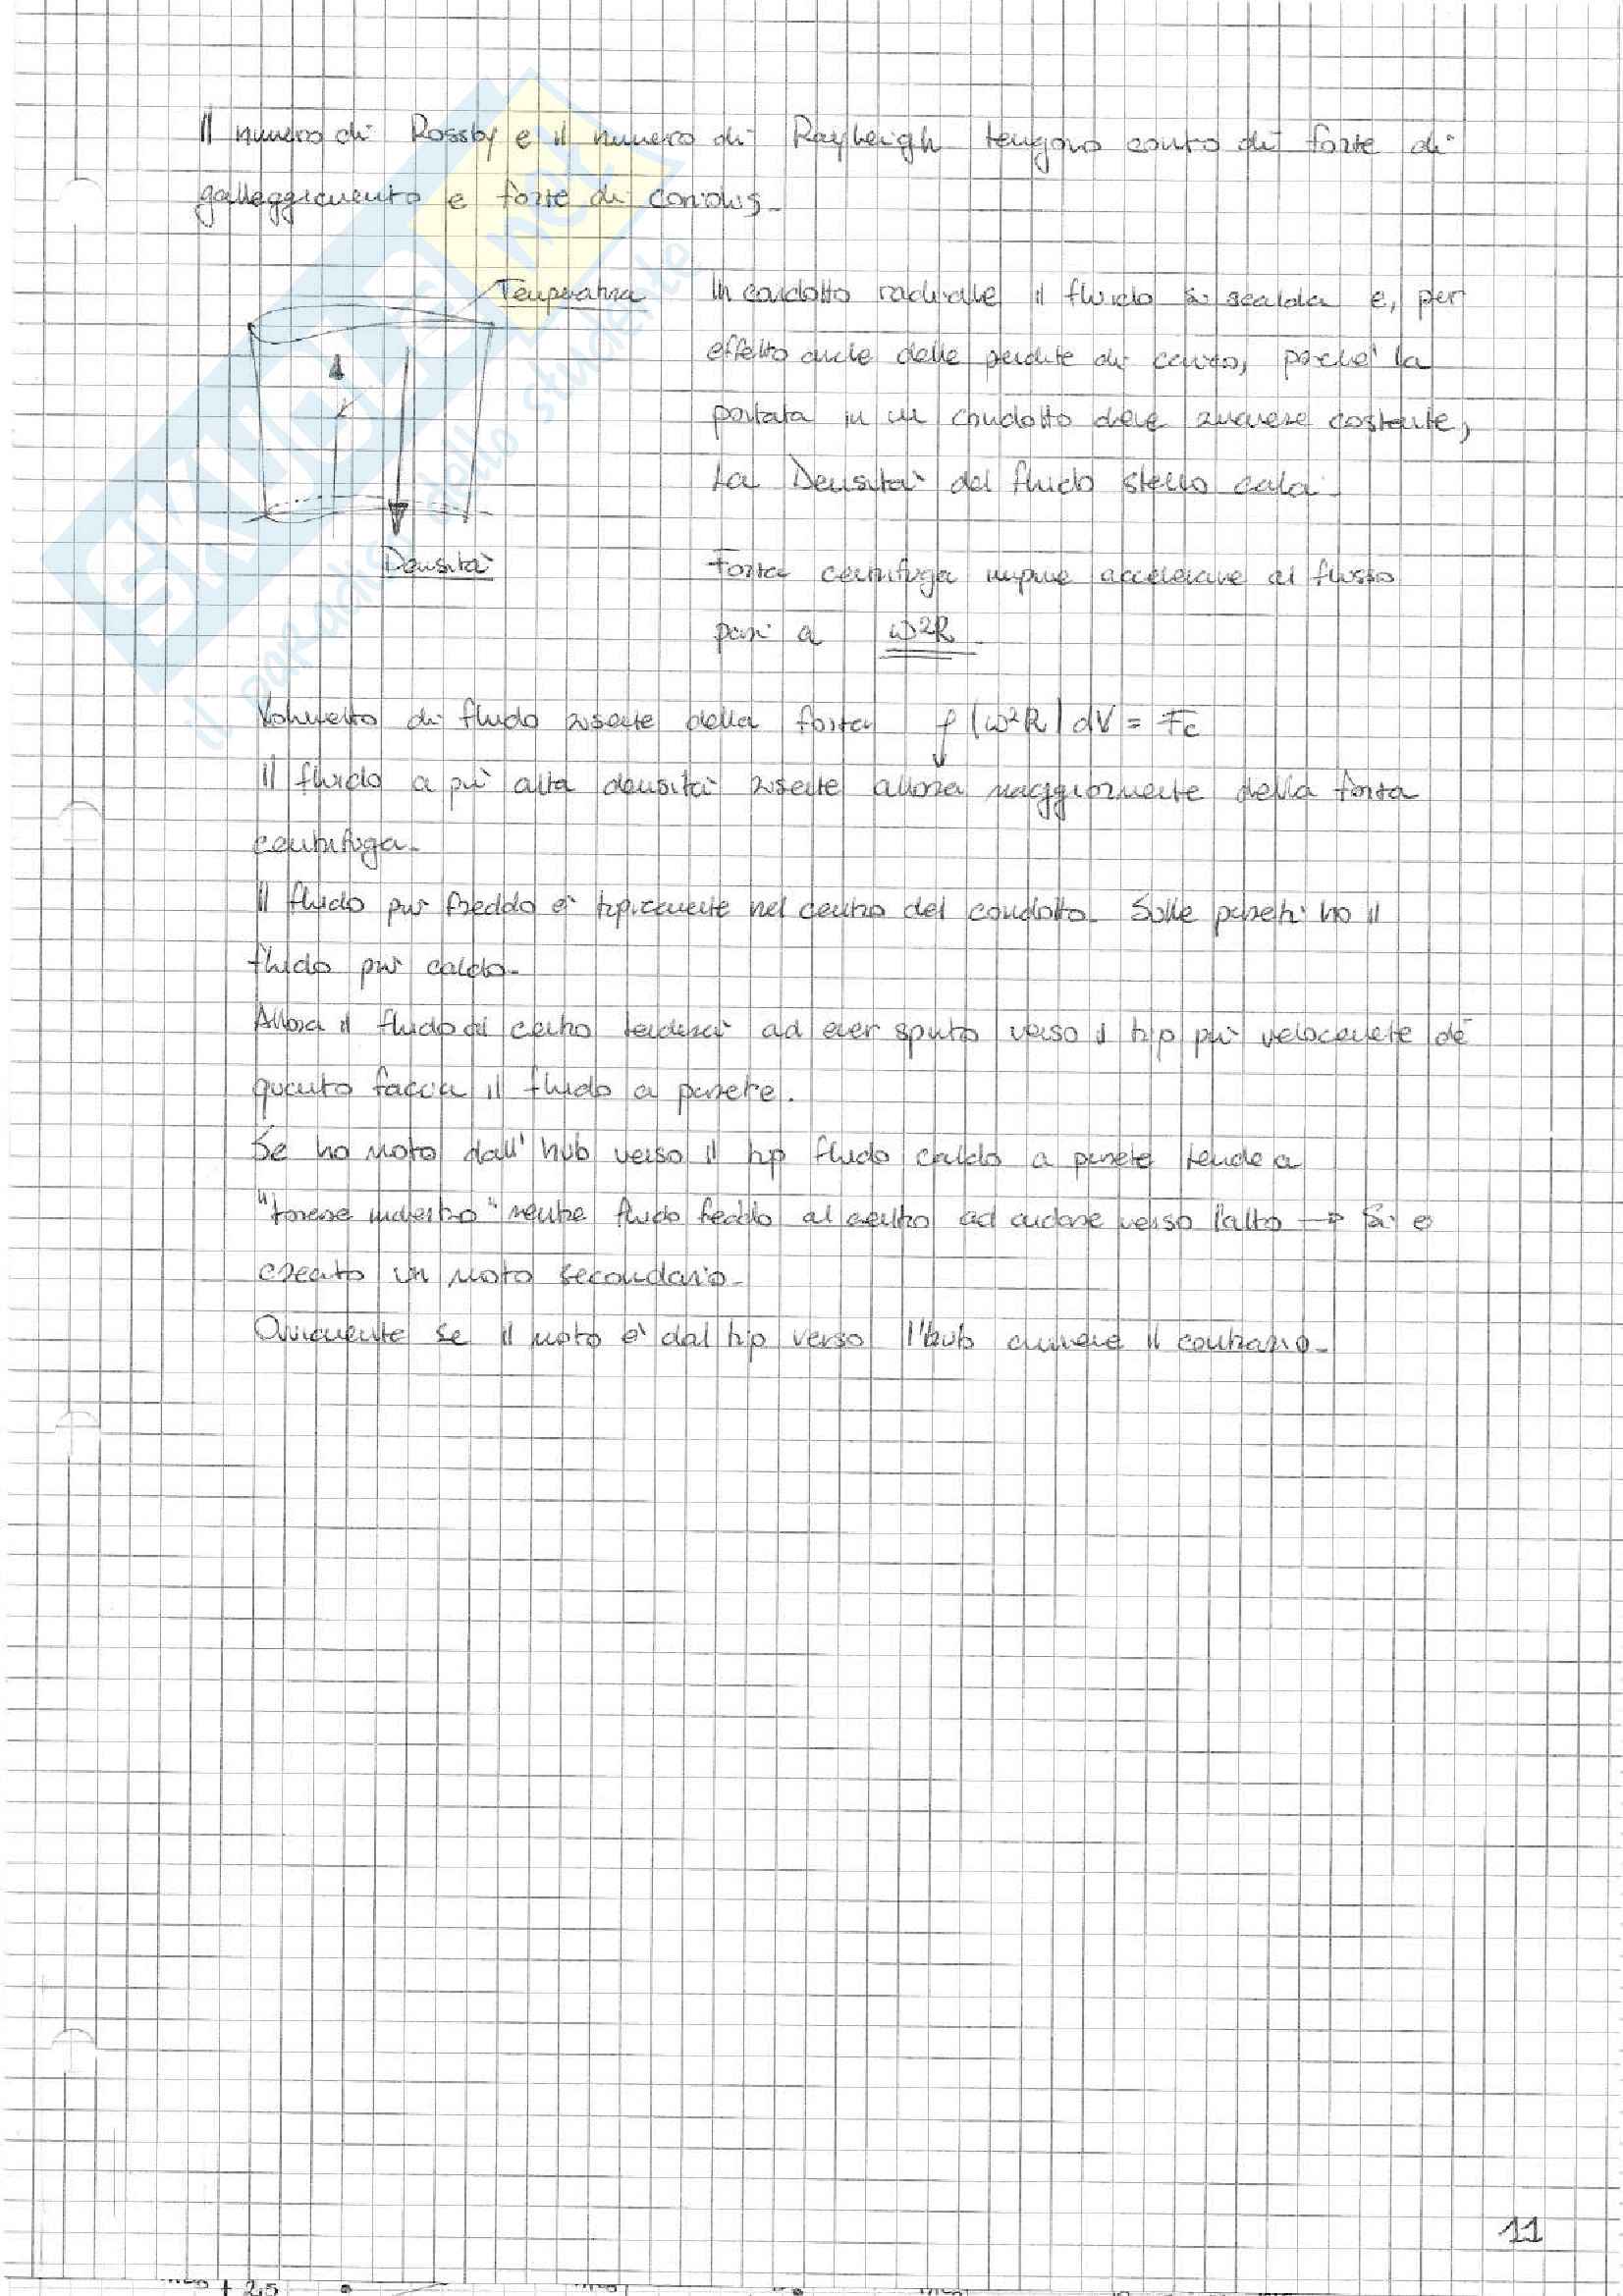 Il numero di Rossby e il numero di Rayheigh tengono conto di forze di
galleggiamento e forze di coriolis.
Temperatura
In condotto radiale il fluido si scalda e, per
effetto anche delle perdite di carico, perché la
portata in un condotto deve rimanere costante,
La Densità del fluido stesso cala.
Densità
Forza centrifuga impone accelerazione al flusso
pari a ω²R
Volumetto di fluido risente della forza ρ(ω²R)dV = Fc
Il fluido a più alta densità risente allora maggiormente della forza
centrifuga.
Il fluido più freddo è tipicamente nel centro del condotto. Sulle pareti ho il
fluido più caldo.
Allora il fluido al centro tenderà ad esser spinto verso il tip più velocemente di
quanto faccia il fluido a parete.
Se ho moto dall'hub verso il tip fluido caldo a parete tende a
"tornare indietro" mentre fluido freddo al centro ad andare verso l'alto → Si è
creato un moto secondario.
Ovviamente se il moto è dal tip verso l'hub avviene il contrario.
11
SKUOLA.net
il paradiso dello studente